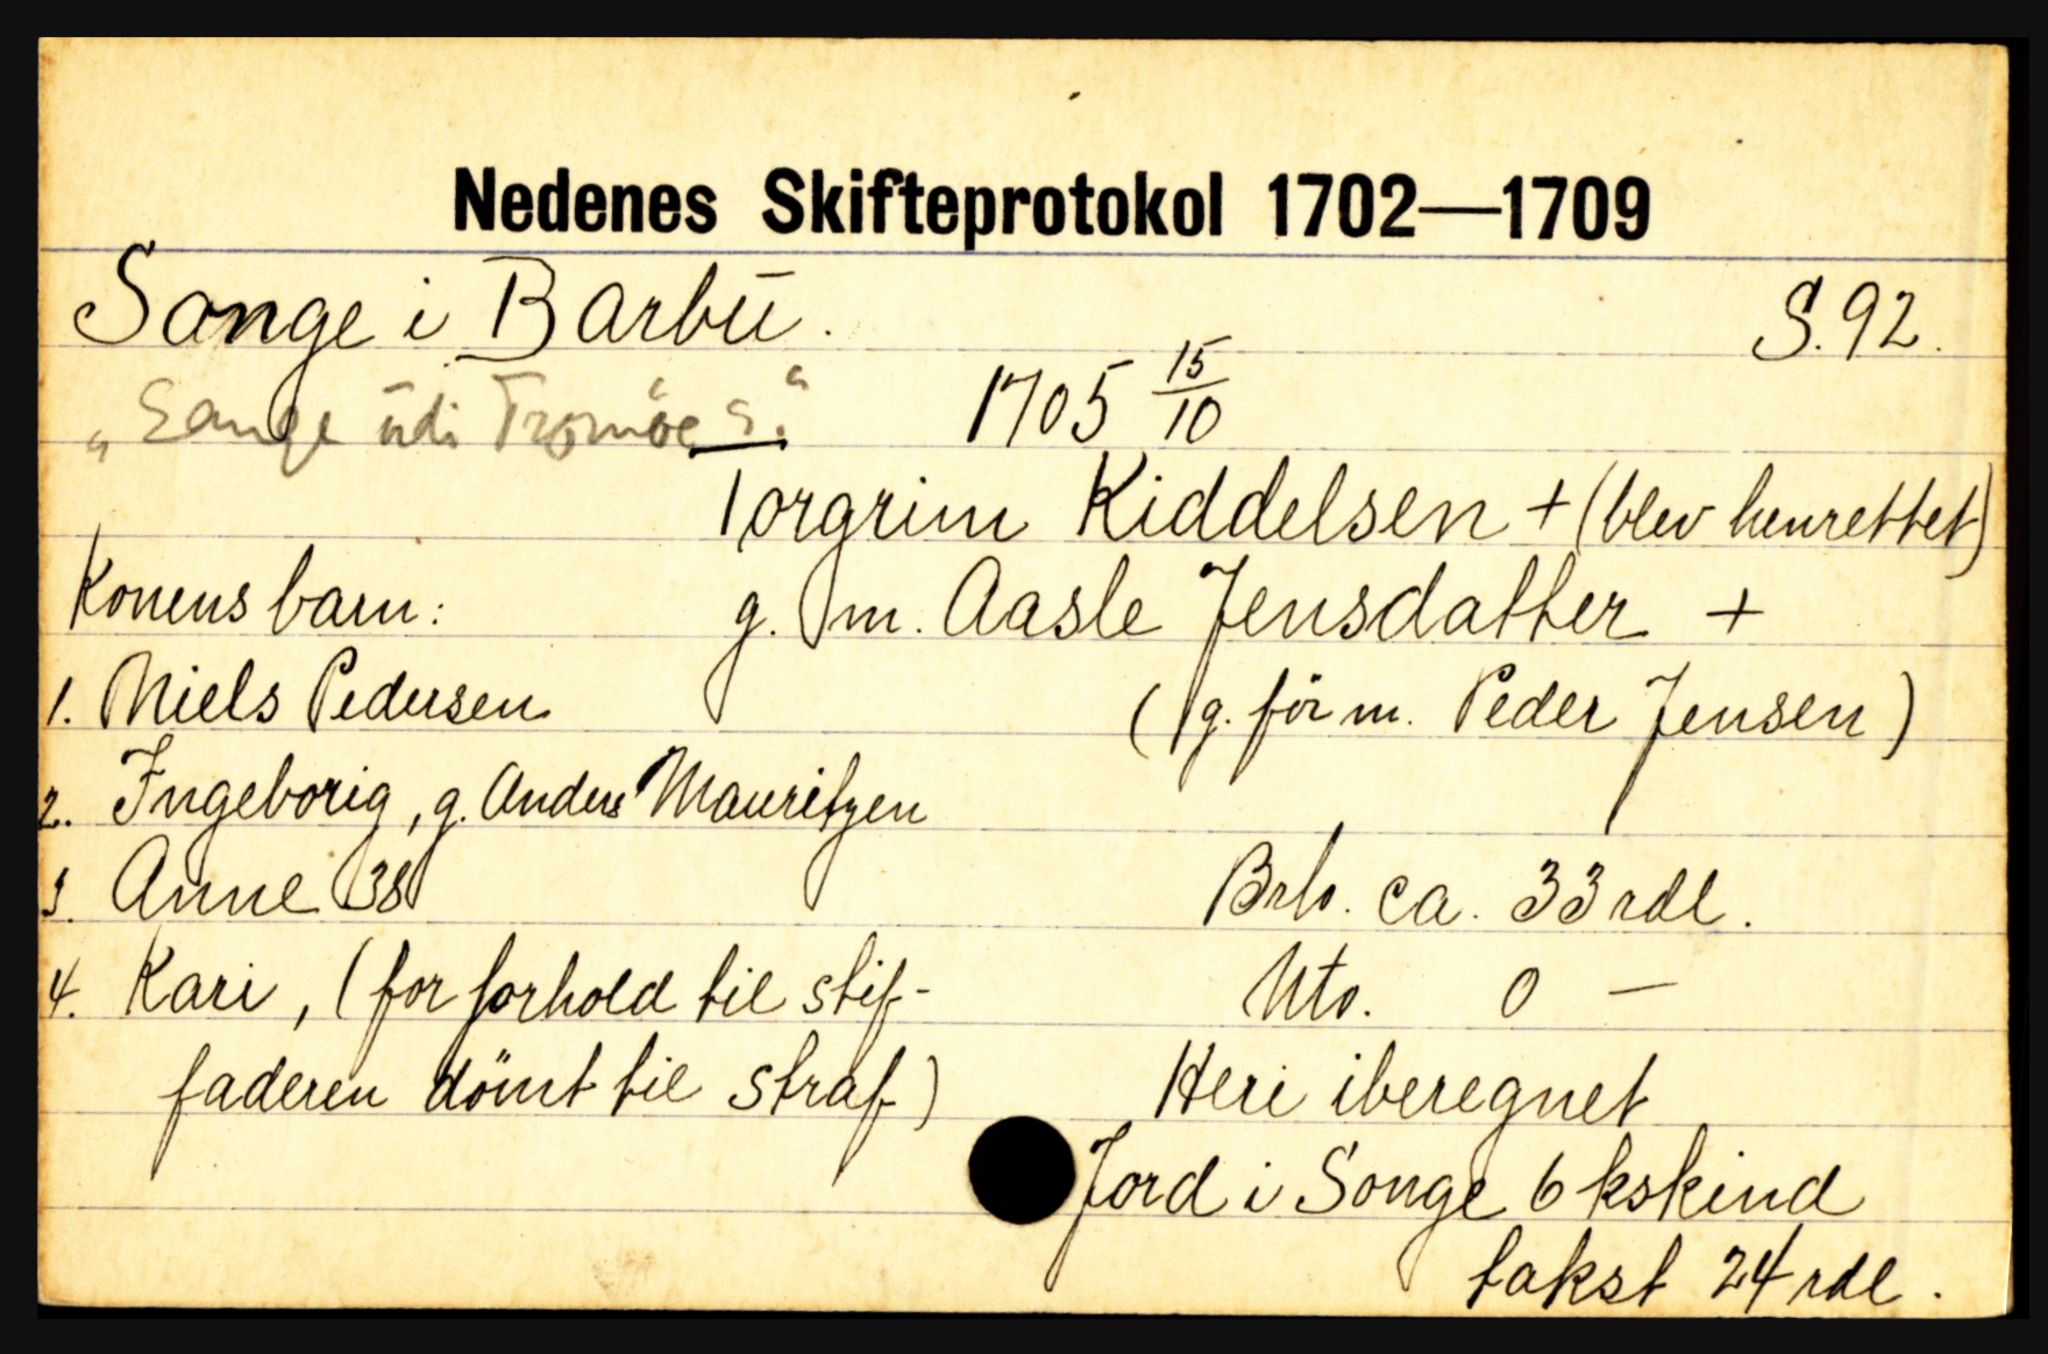 Nedenes Skifteprotokol 1702—1709
Songe i Barbu. S. 92.
„Sange udi Tromöe S." 1705 15/10
Torgrim Kiddelsen + (blev henrettet)
Konens barn: g. m. Aasle Jensdatter +
1. Niels Pedersen (g. för m. Peder Jensen)
2. Ingeborig, g. Anders Mauritzen
3. Anne 38 Brto. ca. 33 rdl.
4. Kari, (for forhold til stif- Nto. 0 —
faderen dömt til straf) Heri iberegnet
Jord i Songe 6 kskind
takst 24 rdl.